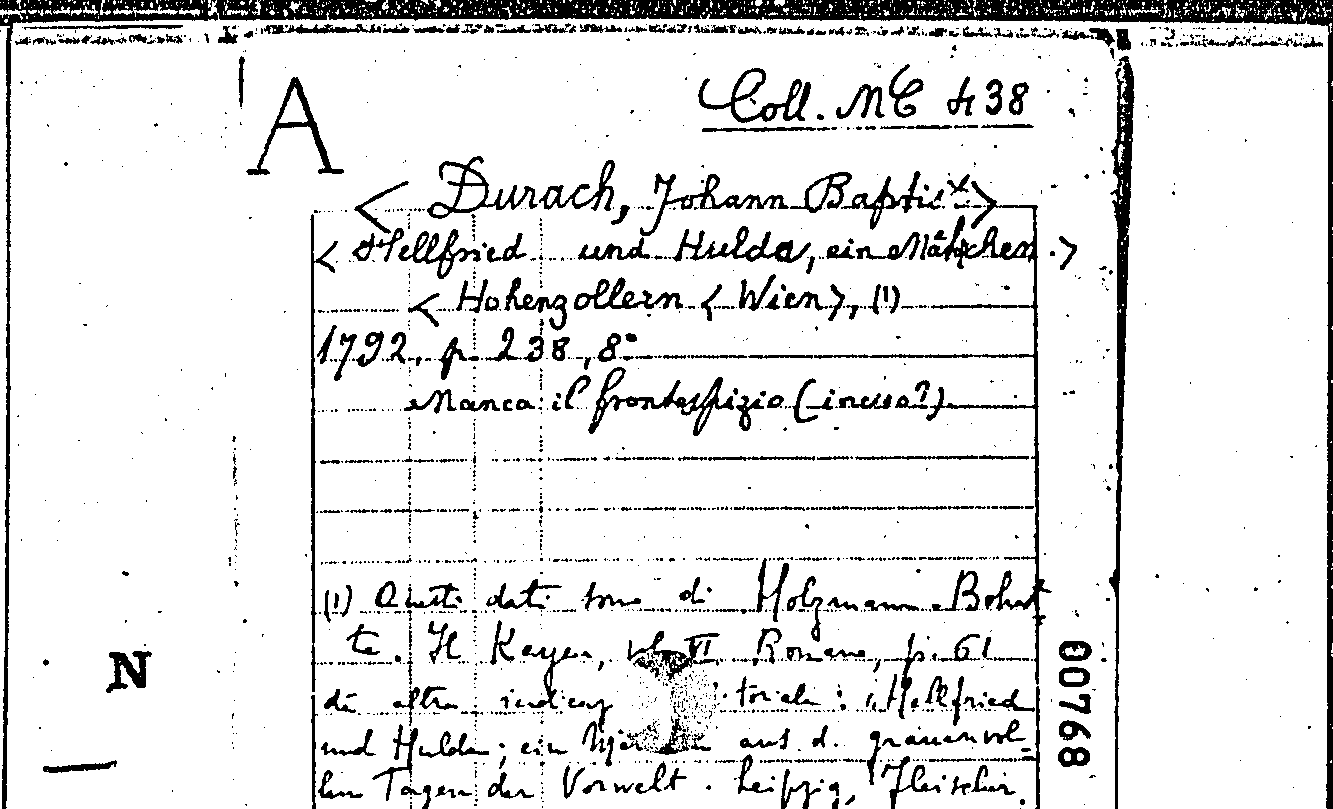 A
Coll. MC H 38
< Durach, Johann Baptist >
< Hellfried und Hulda, ein Mährchen. >
< Hohenzollern < Wien >, (1)
1792, p. 238, 8°
Manca il frontespizio (inciso?).
(1) Questi dati sono di Holzmann-Bohat
ta. Il Kayser, vol. VI Romane, p. 61
dà altra : "Hellfried
und Hulda; ein aus d. grauenvol=
len Tagen der Vorwelt. Leipzig, Fleischer.
N
00768